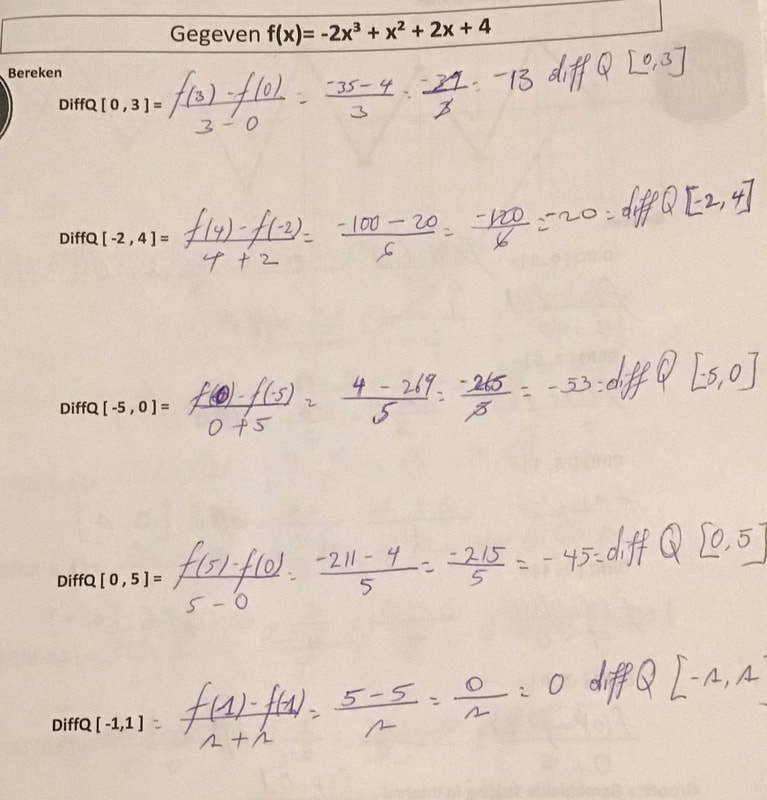 Gegeven f(x)= -2x³ + x² + 2x + 4
Bereken
DiffQ [ 0 , 3 ] = f(3) - f(0) / 3 - 0 = -35 - 4 / 3 = -39 / 3 = -13 diff Q [0,3]
DiffQ [ -2 , 4 ] = f(4) - f(-2) / 4 + 2 = -100 - 20 / 6 = -120 / 6 = -20 = diff Q [-2, 4]
DiffQ [ -5 , 0 ] = f(0) - f(-5) / 0 + 5 = 4 - 269 / 5 = -265 / 5 = -53 = diff Q [-5, 0]
DiffQ [ 0 , 5 ] = f(5) - f(0) / 5 - 0 = -211 - 4 / 5 = -215 / 5 = -45 = diff Q [0, 5]
DiffQ [ -1,1 ] = f(1) - f(1) / 1 + 1 = 5 - 5 / = 0 / = 0 diff Q [-1, 1